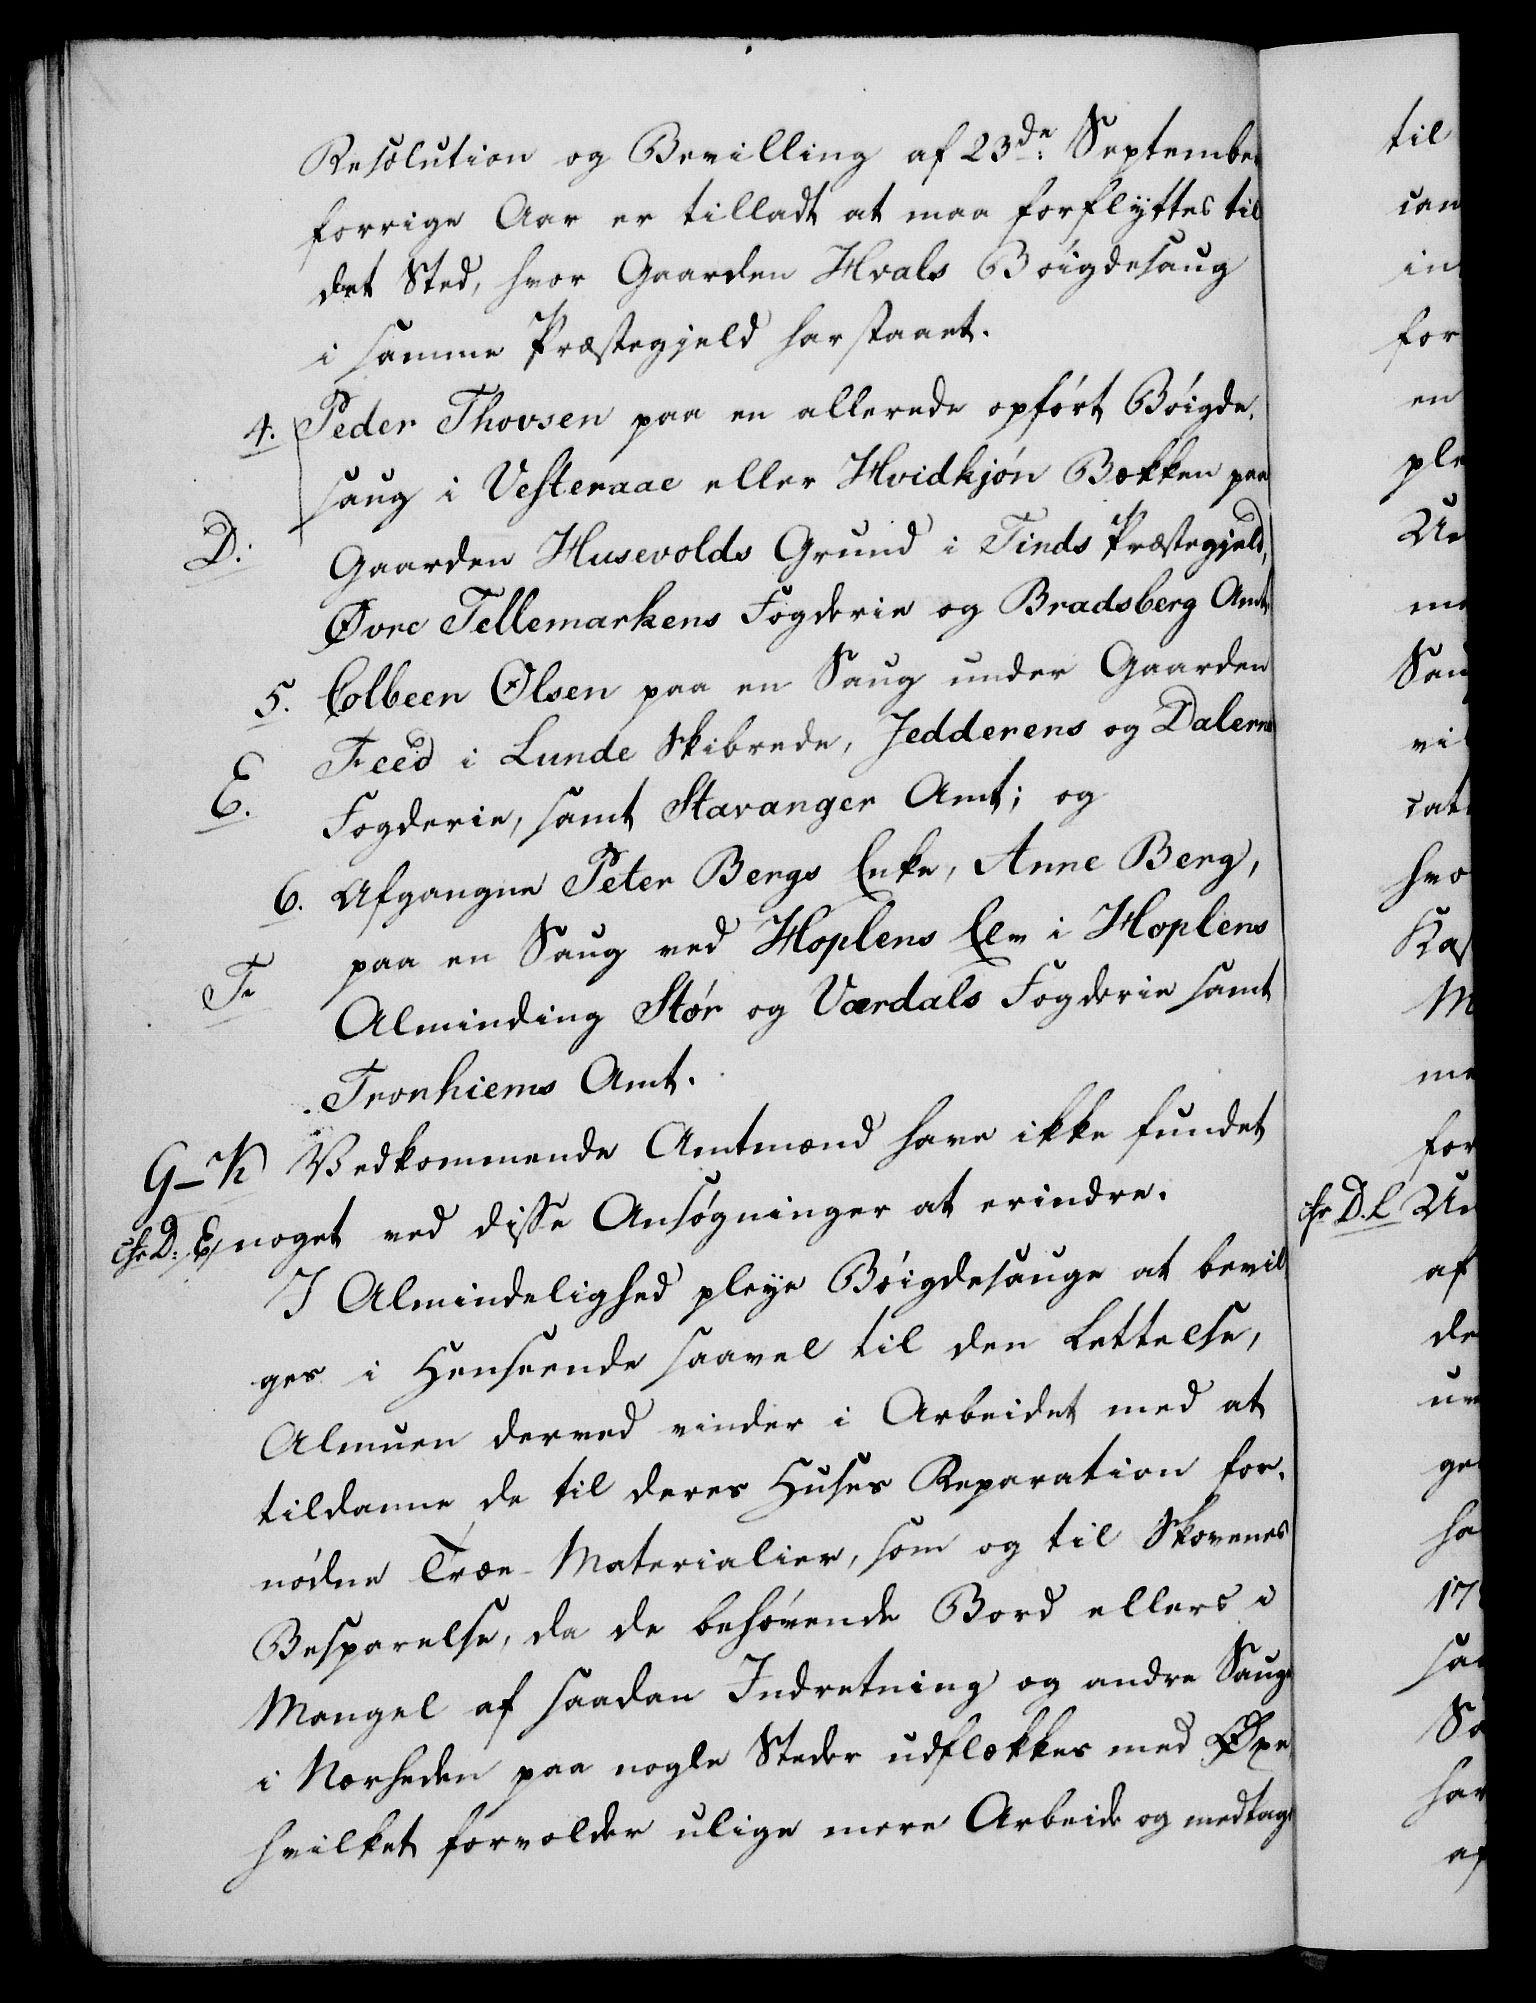 Resolution og Bevilling af 23de: September
forrige Aar er tilladt at maa forflyttes til
det Sted, hvor Gaarden Hvals Bøigdesaug
i samme Præstegjeld har staaet.
4. Peder Thovsen paa en allerede opført Bøigde-
saug i Vesteraae eller Hvidkjøn Bækken paa
D: Gaarden Husevolds Grund i Tinds Præstegjeld,
Øvre Tellemarkens Fogderie og Bradsberg Amt
5. Colbeen Olsen paa en Saug under Gaarden
E. Feed i Lunde Skibrede, Jedderens og Dalerne
Fogderie, samt Stavanger Amt; og
6. Afgangne Peter Bergs Enke, Anne Berg,
F. paa en Saug ved Hoplens Elv i Hoplens
Alminding Stør og Værdals Fogderie samt
Tronhiems Amt.
G-K Vedkommende Amtmænd have ikke fundet
cfr D: E, noget ved disse Ansøgninger at erindre.
I Almindelighed pleye Bøigdesauge at bevil
ges i Henseende saavel til den Lettelse,
Almuen derved vinder i Arbeidet med at
tildanne de til deres Huses Reparation for-
nødne Træe-Materialier, som og til Skovenes
Besparelse, da de behøvende Bord ellers i
Mangel af saadan Indretning og andre Sauge
i Nærheden paa nogle Steder udflækkes med Øxe
hvilket forvolder ulige mere Arbeide og medtage
til
can
in
for
en
ple
me
Sau
vi
cat
hvo
Kas
M
me
for
cfr D. L
af
de
un
ge
ha
17
saa
So
har
af